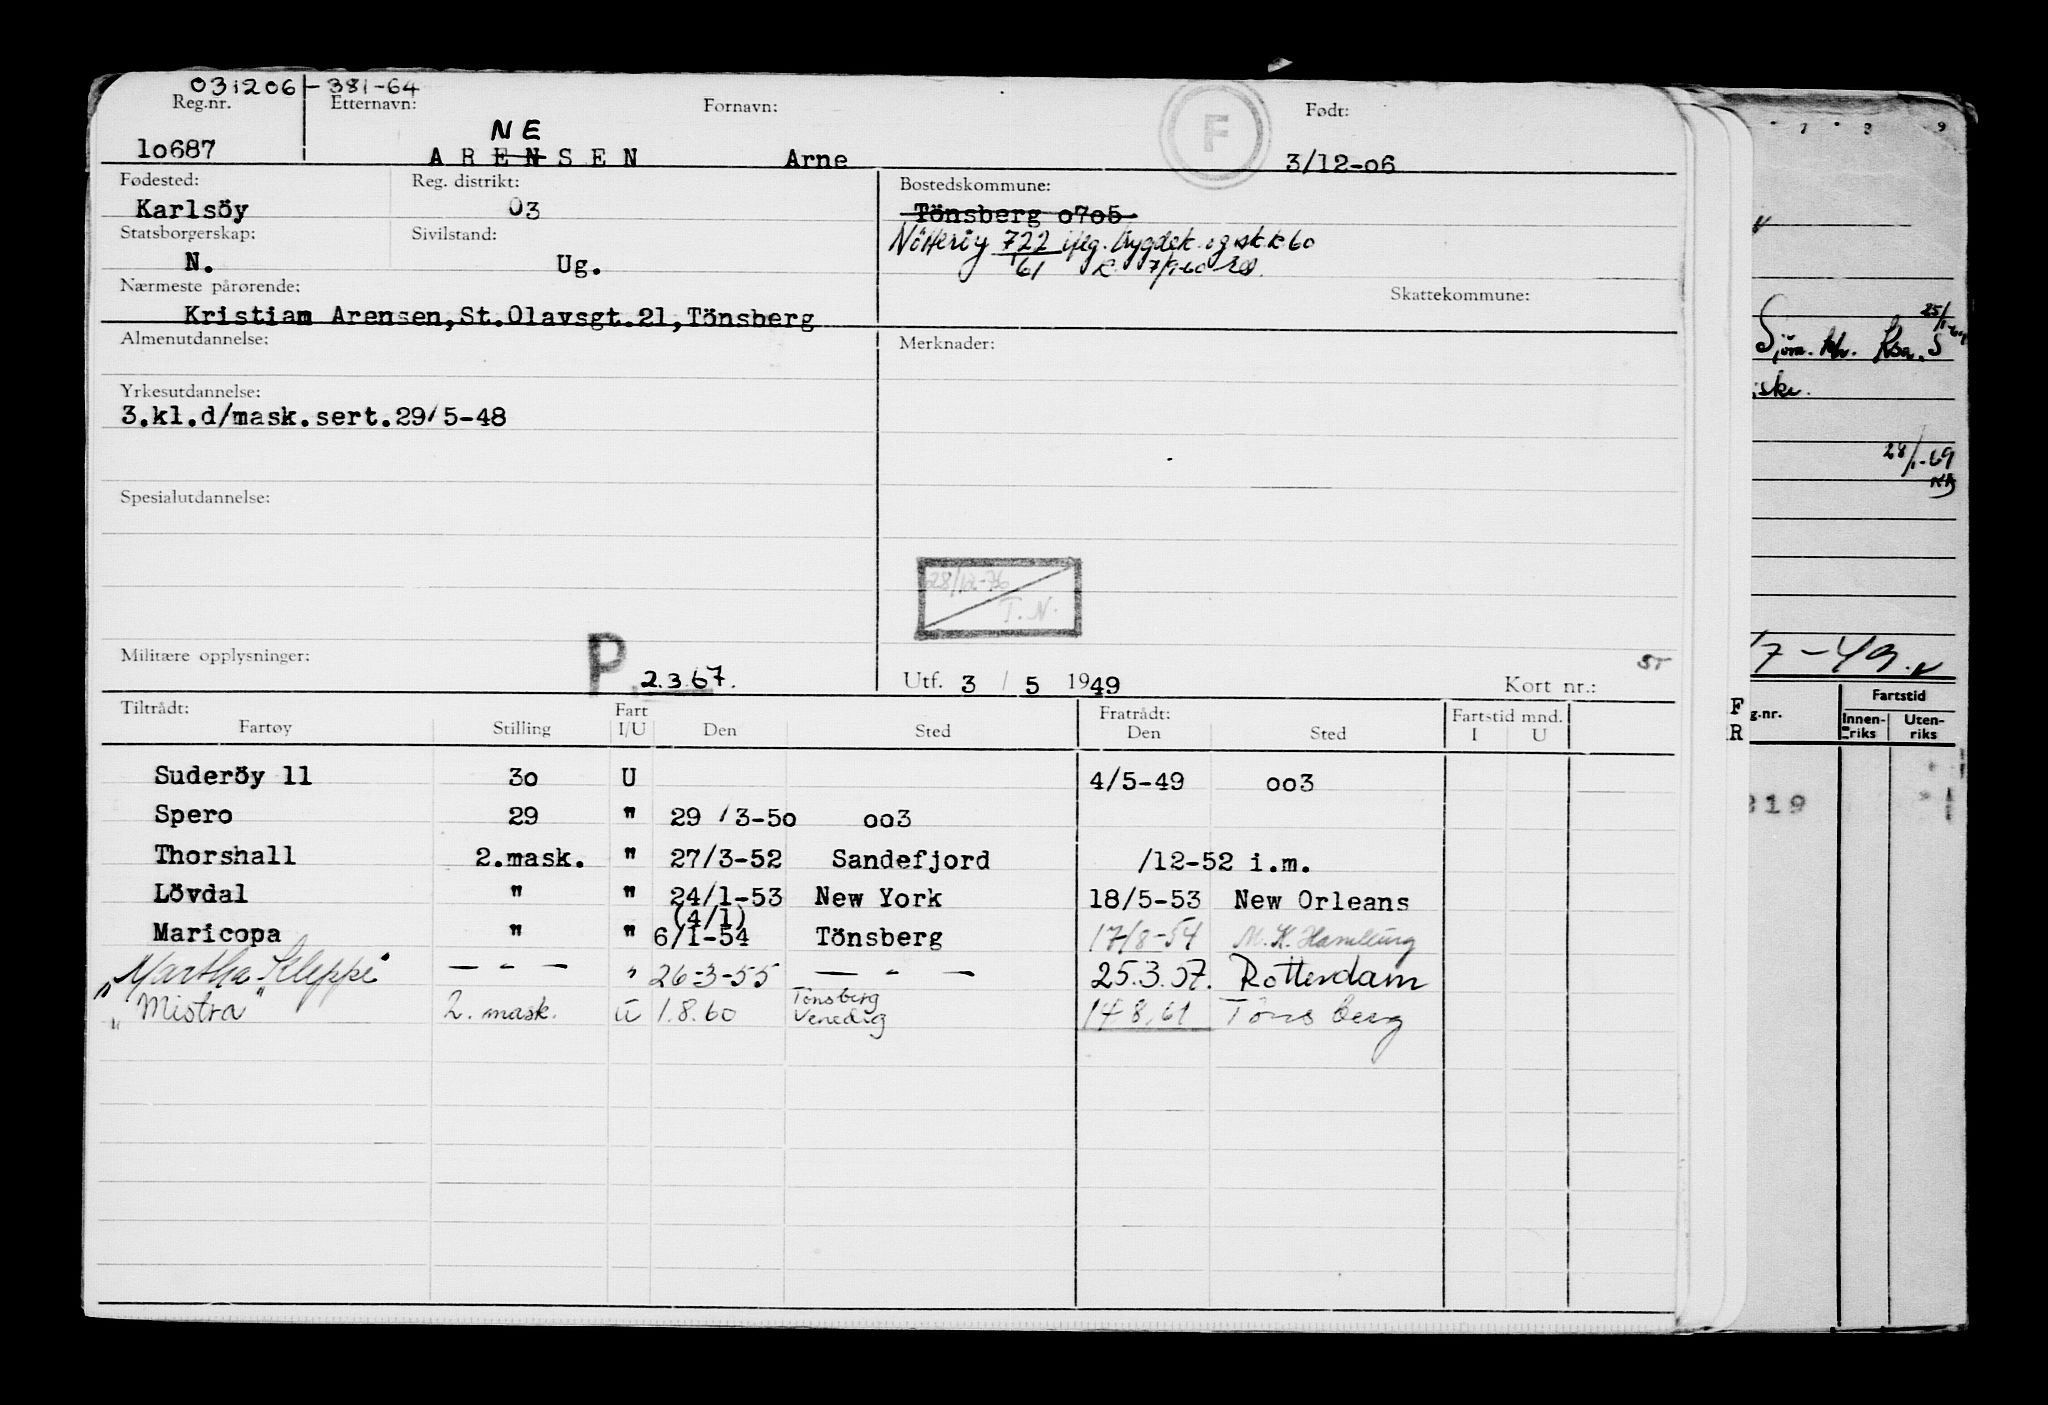 031206-381-64
Reg.nr. Etternavn: Fornavn: Født:
NE
lo687 A R E N S E N Arne F 3/12-o6
Fødested: Reg. distrikt: Bostedskommune:
Karlsöy 03 Tönsberg o7o5
Statsborgerskap: Sivilstand: Nötteröy 722 iflg. trygdek. og sk.k 60
N. Ug. 61 7/9-60
Nærmeste pårørende: Skattekommune:
Kristiam Arensen,St.Olavsgt.21,Tönsberg
Almenutdannelse: Merknader:
Yrkesutdannelse:
3.kl.d/mask.sert.29/5-48
Spesialutdannelse:
28/12-76
T.N.
Militære opplysninger: P 2.3.67. Utf. 3 / 5 1949 Kort nr.:
Tiltrådt: Fart Fratrådt: Fartstid mnd.
Fartøy Stilling I/U Den Sted Den Sted I U
Suderöy 11 3o U 4/5-49 oo3
Spero 29 " 29 /3-5o oo3
Thorshall 2.mask. " 27/3-52 Sandefjord /12-52 i.m.
Lövdal " " 24/1-53 New York 18/5-53 New Orleans
(4/1)
Maricopa " " 6/1-54 Tönsberg 17/8-54 M.K. Hamburg
"Martha Kleppe" — " — " 26-3-55 — " — 25.3.57. Rotterdam
"Mistra" 2. mask. U 1.8.60 Tönsberg Venedig 14 8.61 Tönsberg
7 8 9
25/1-69
28/1-69
/7-49.
F g.nr. Fartstid
R Innen-riks Uten-riks
319